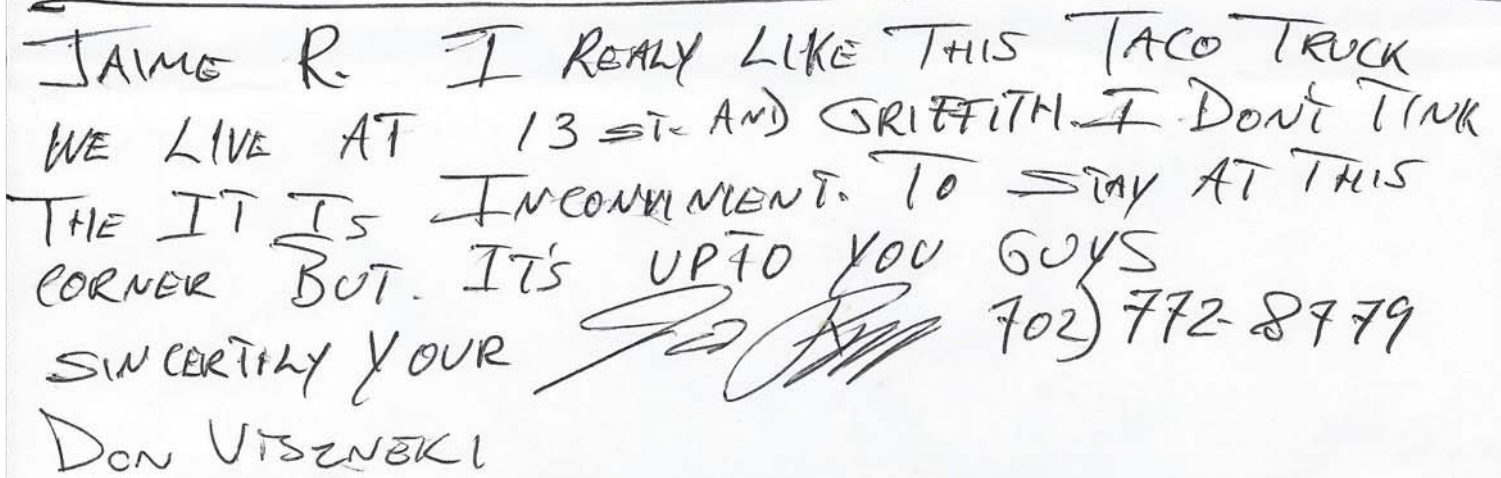 JAIME R. I REALY LIKE THIS TACO TRUCK
WE LIVE AT 13 ST. AND GRIFFITH. I DON'T TINK
THE IT IS INCONVINIENT. TO STAY AT THIS
CORNER BUT. IT'S UPTO YOU GUYS
SINCERTILY YOUR 702) 772-8779
DON